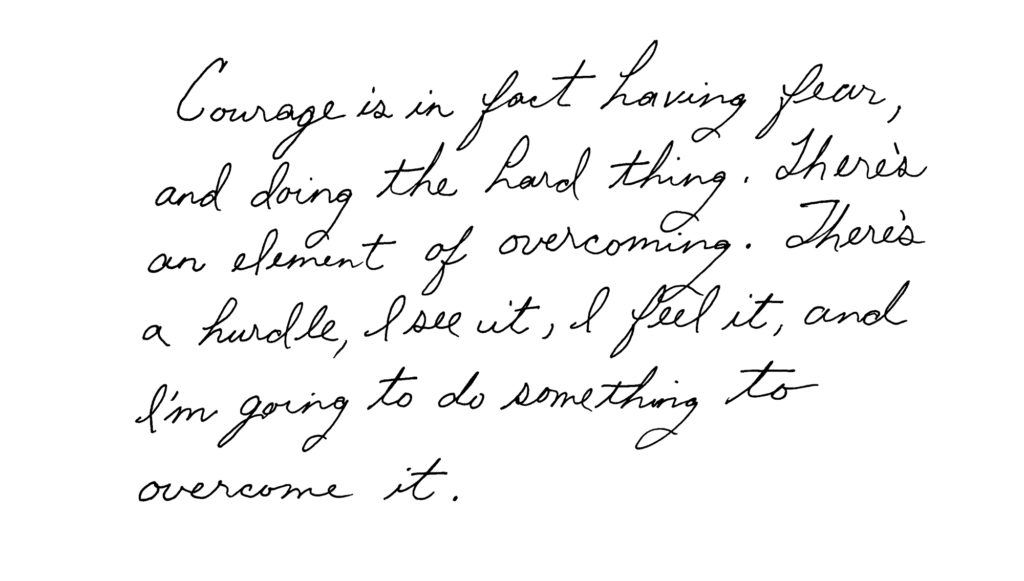 Courage is in fact having fear,
and doing the hard thing. There's
an element of overcoming. There's
a hurdle, I see it, I feel it, and
I'm going to do something to
overcome it.